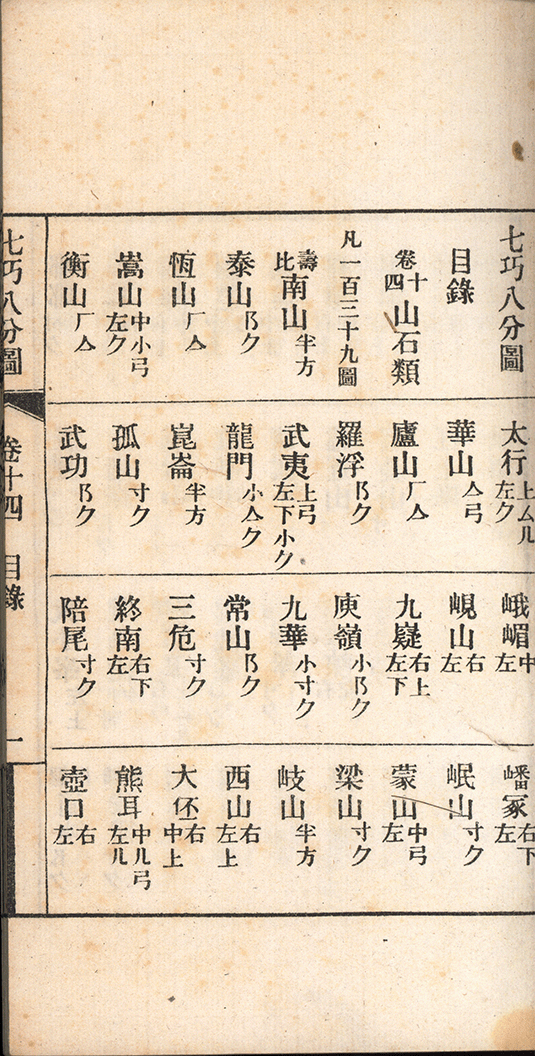 七巧八分圖
目錄
卷十四 山石類
凡一百三十九圖
壽比南山 半方
泰山 阝ク
恆山 厂亼
嵩山 中小弓左ク
衡山 厂亼
太行 上厶儿左ク
華山 亼弓
廬山 厂亼
羅浮 阝ク
武夷 上弓左下小ク
龍門 小亼ク
崑崙 半方
孤山 寸ク
武功 阝ク
峨嵋 中左
峴山 右左
九嶷 右上左下
庾嶺 小阝ク
九華 小寸ク
常山 阝ク
三危 寸ク
終南 右下左
陪尾 寸ク
嶓冢 右下左
岷山 寸ク
蒙山 中弓左
梁山 寸ク
岐山 半方
西山 右左上
大伾 右中上
熊耳 中儿弓左儿
壺口 右左
七巧八分圖 卷十四 目錄 一